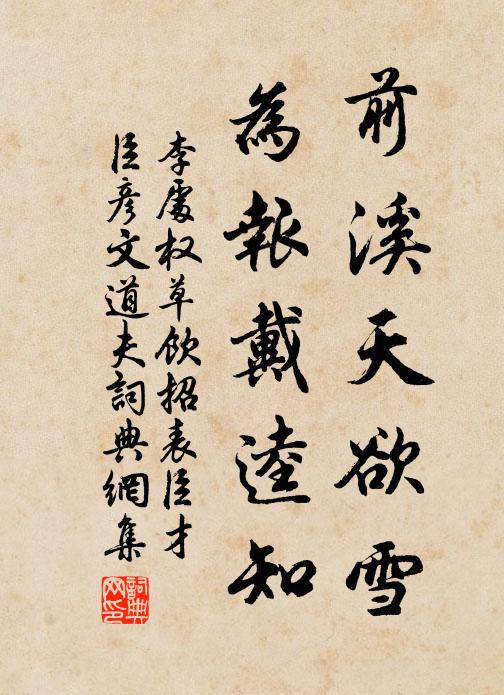 前溪天欲雪
為報戴逵知
李處权草飲招表臣才
臣彥文道夫詞典網集
詞典网印